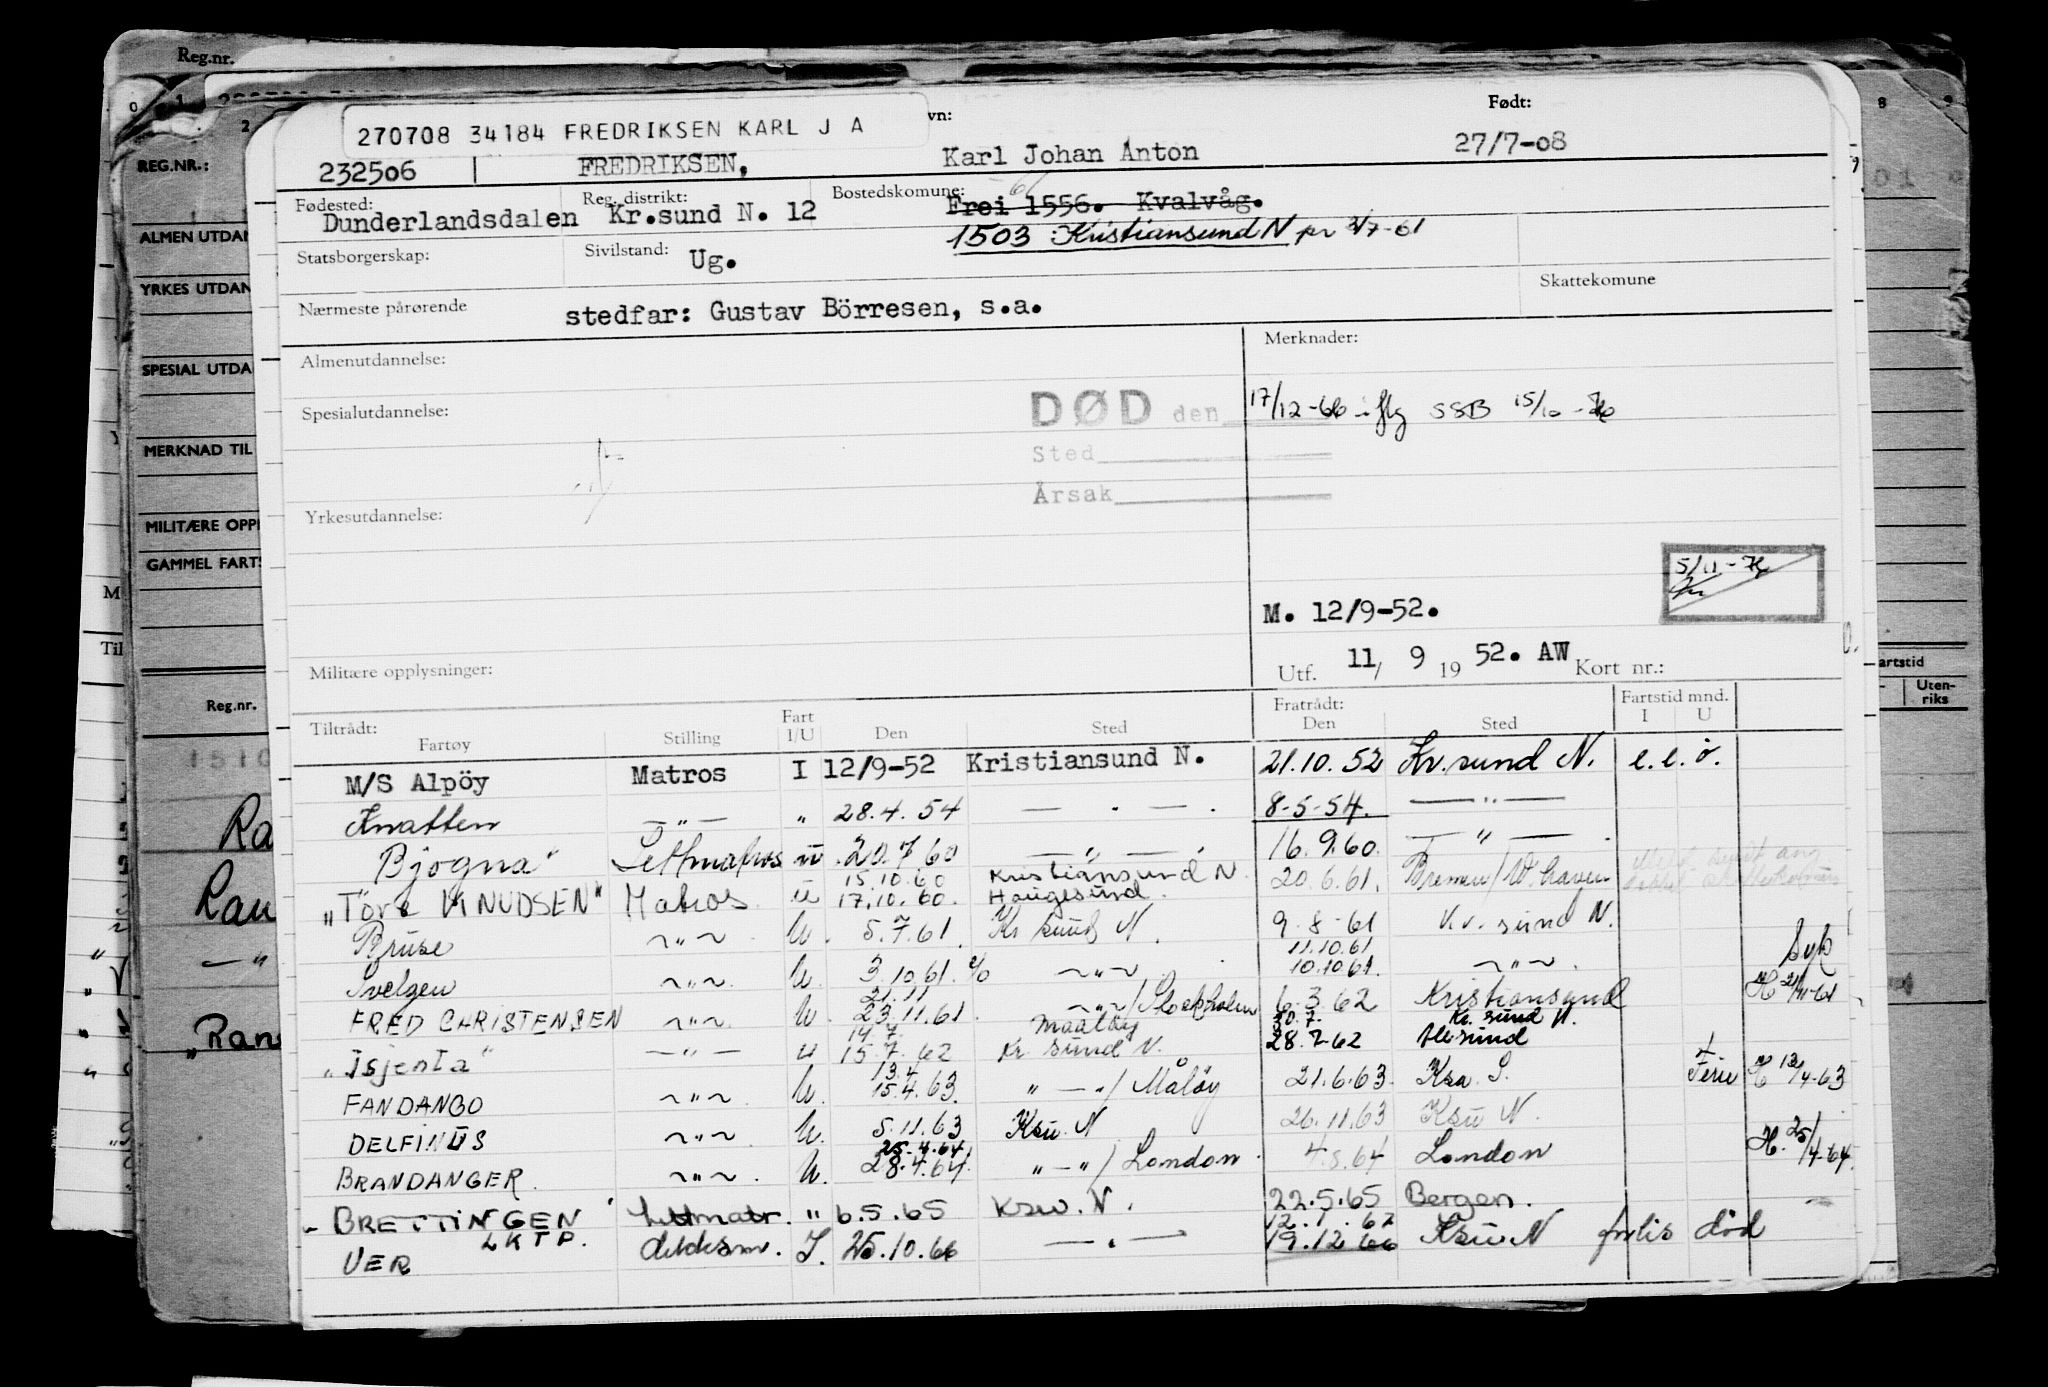 Reg.nr.
270708 34184 FREDRIKSEN KARL J A
vn:
Født:
232506 FREDRIKSEN, Karl Johan Anton 27/7-08
Fødested: Reg. distrikt: Bostedskomune:
Dunderlandsdalen Kr.sund N. 12 Frei 1556. Kvalvåg.
1503 Kristiansund N pr 3/7-61
Statsborgerskap: Sivilstand: Ug.
Skattekomune
Nærmeste pårørende stedfar: Gustav Börresen, s.a.
Almenutdannelse: Merknader:
Spesialutdannelse: DØD den 17/12-66 iflg SSB 15/10-
Sted
Årsak
Yrkesutdannelse:
5/11-
M. 12/9-52.
Militære opplysninger: Utf. 11/ 9 19 52. AW Kort nr.:
Tiltrådt: Fratrådt: Fartstid mnd.
Fartøy Stilling Fart I/U Den Sted Den Sted I U
M/S Alpöy Matros I 12/9-52 Kristiansund N. 21.10.52 Kr.sund N. e.e.o.
Knatten —"— " 28.4.54 — " — . 8-5-54. —"—
Bjogna Lettmatros u .20.7.60 —"— . 16.9.60. — " — .
15.10.60 Kristiansund N.
"Tore KNUDSEN" Matros u 17.10.60. Haugesund. 20.6.61. Bremen/W.haven
Bruse ~"~ U. 5.7.61. Kr sund N. 9-8-61 Kr. sund N.
11.10.61
Svelgen ~"~ U. 3.10.61. % ~"~ 10.10.61. ~"~ . Syk
21.11
FRED CHRISTENSEN ~"~ U. 23.11.61. ~"~/Stockholm 6.3.62 Kristiansund H 21/11-61
14.7. Maaløy 30.7. Kr. sund N.
"Isjenta" —"— u 15.7.62 Kr. sund N. 28.7-62 Ålesund
13.4
FANDANGO ~"~ U. 15.4.63. " — "/ Måløy 21.6.63. Ksa. S. Ferie H 13/4-63
DELFINUS ~"~ U. 5.11.63 Ksu. N 26.11.63 Ksu N.
25.4.64
BRANDANGER. ~"~ . U. 28.4.64. "—"/ London 4.8.64 London H. 25/4-64.
BRETTINGEN Lettmatr. " 6.5.65 Ksu. N. 22.5.65 Bergen.
LKTP. 12.1.67
VER dekksm. I. 25.10.66 —"— 19.12.66 Ksu N forlis død
REG.NR.:
ALMEN UTDAN
YRKES UTDAN
SPESIAL UTDA
MERKNAD TIL
MILITÆRE OPPL
GAMMEL FARTS
Reg.nr.
1510
Ra
Rau
—"
"Rans
M
Til
artstid
Uten-
riks